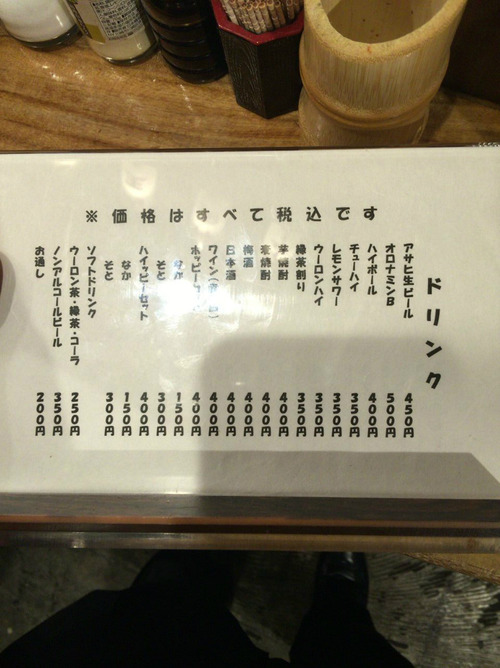 ※価格はすべて税込です
ドリンク
アサヒ生ビール 450円
オロナミンB 500円
ハイボール 400円
チューハイ 350円
レモンサワー 350円
ウーロンハイ 350円
緑茶割り 350円
芋焼酎 400円
麦焼酎 400円
梅酒 400円
日本酒 400円
ワイン 400円
ホッピーセット 400円
なか 150円
そと 300円
ハイッピーセット 400円
なか 150円
そと 300円
ソフトドリンク
ウーロン茶・緑茶・コーラ 250円
ノンアルコールビール 350円
お通し 200円